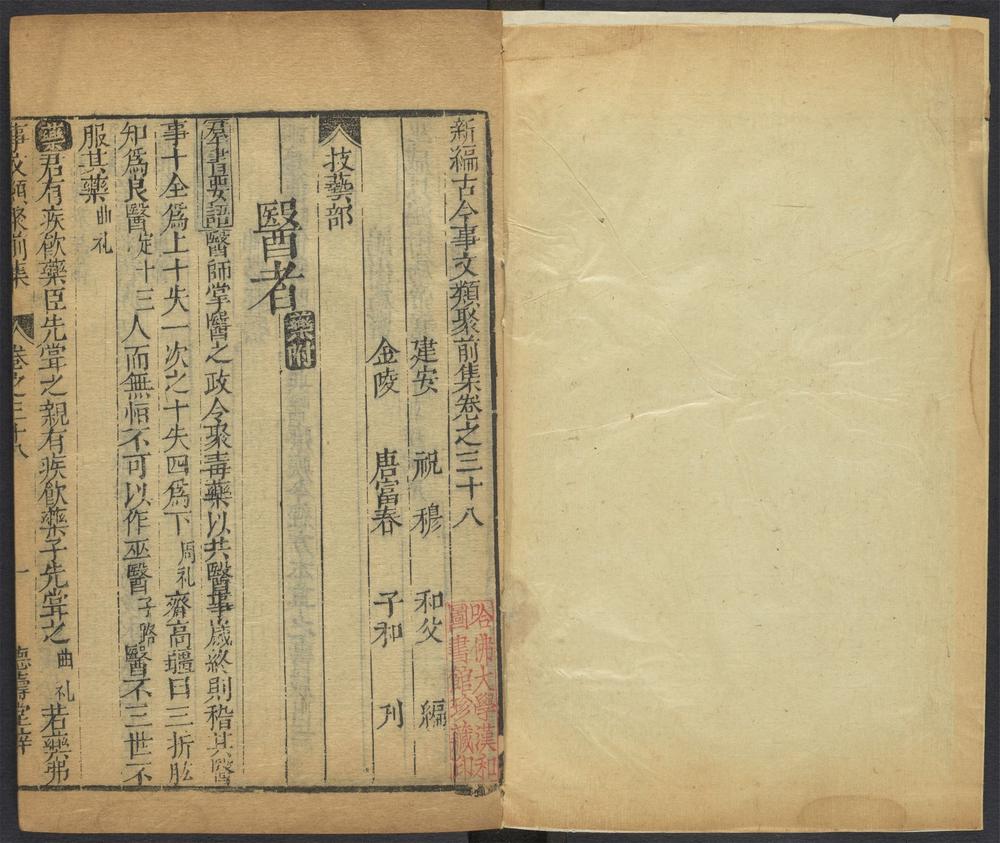 新編古今事文類聚前集卷之三十八
建安 祝穆 和父 編
金陵 唐富春 子和 刋
哈佛大學漢和
圖書館珍藏印
技藝部
醫者 藥附
羣書要語 醫師掌醫之政令聚毒藥以共醫事歲終則稽其醫
事十全爲上十失一次之十失四爲下 周礼 齊高彊曰三折肱
知爲良醫 定十三 人而無恒不可以作巫醫 子路 醫不三世不
服其藥 曲礼
藥 君有疾飲藥臣先嘗之親有疾飲藥子先嘗之 曲礼 若藥弗
事文類聚前集 卷之三十八 一 德壽堂梓